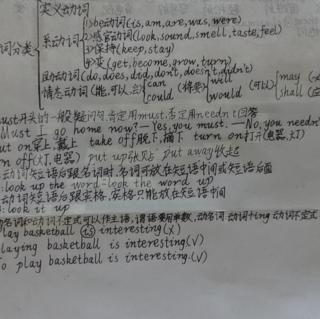 实义动词
词分类 系动词 ①be动词(is,am,are,was,were)
②感官动词(look,sound,smell,taste,feel)
③保持(keep,stay)
④变(get,become,grow,turn)
助动词(do,does,did,don't,doesn't,didn't)
情态动词(能,可以,会) can could (将要) will would (可以) may (必 shall (应
must开头的一般疑问句,肯定用must,否定用needn't回答
Must I go home now?—Yes,you must.—No,you needn't
put on穿上,戴上 take off脱下,摘下 turn on打开(电器,灯)
n off(关灯,电器) put up张贴 put away收起
动词短语后跟名词时,名词可放在短语中间或短语后面
:look up the word-look the word up
动词短语后跟宾格,宾格只能放在短语中间
:look it up
动名词和动词不定式可以作主语,谓语要用单数,动名词:动词+ing 动词不定式
lay basketball is interesting(×)
laying basketball is interesting(√)
o play basketball is interesting.(√)